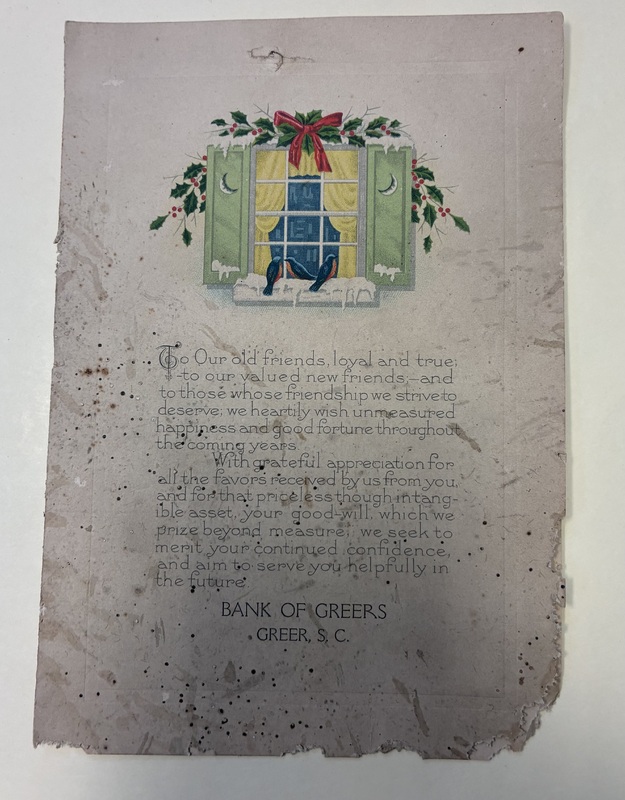 To Our old friends, loyal and true;
-to our valued new friends;-and
to those whose friendship we strive to
deserve; we heartily wish unmeasured
happiness and good fortune throughout
the coming years.
With grateful appreciation for
all the favors received by us from you,
and for that priceless though intang-
ible asset, your good-will, which we
prize beyond measure; we seek to
merit your continued confidence,
and aim to serve you helpfully in
the future.
BANK OF GREERS
GREER, S. C.